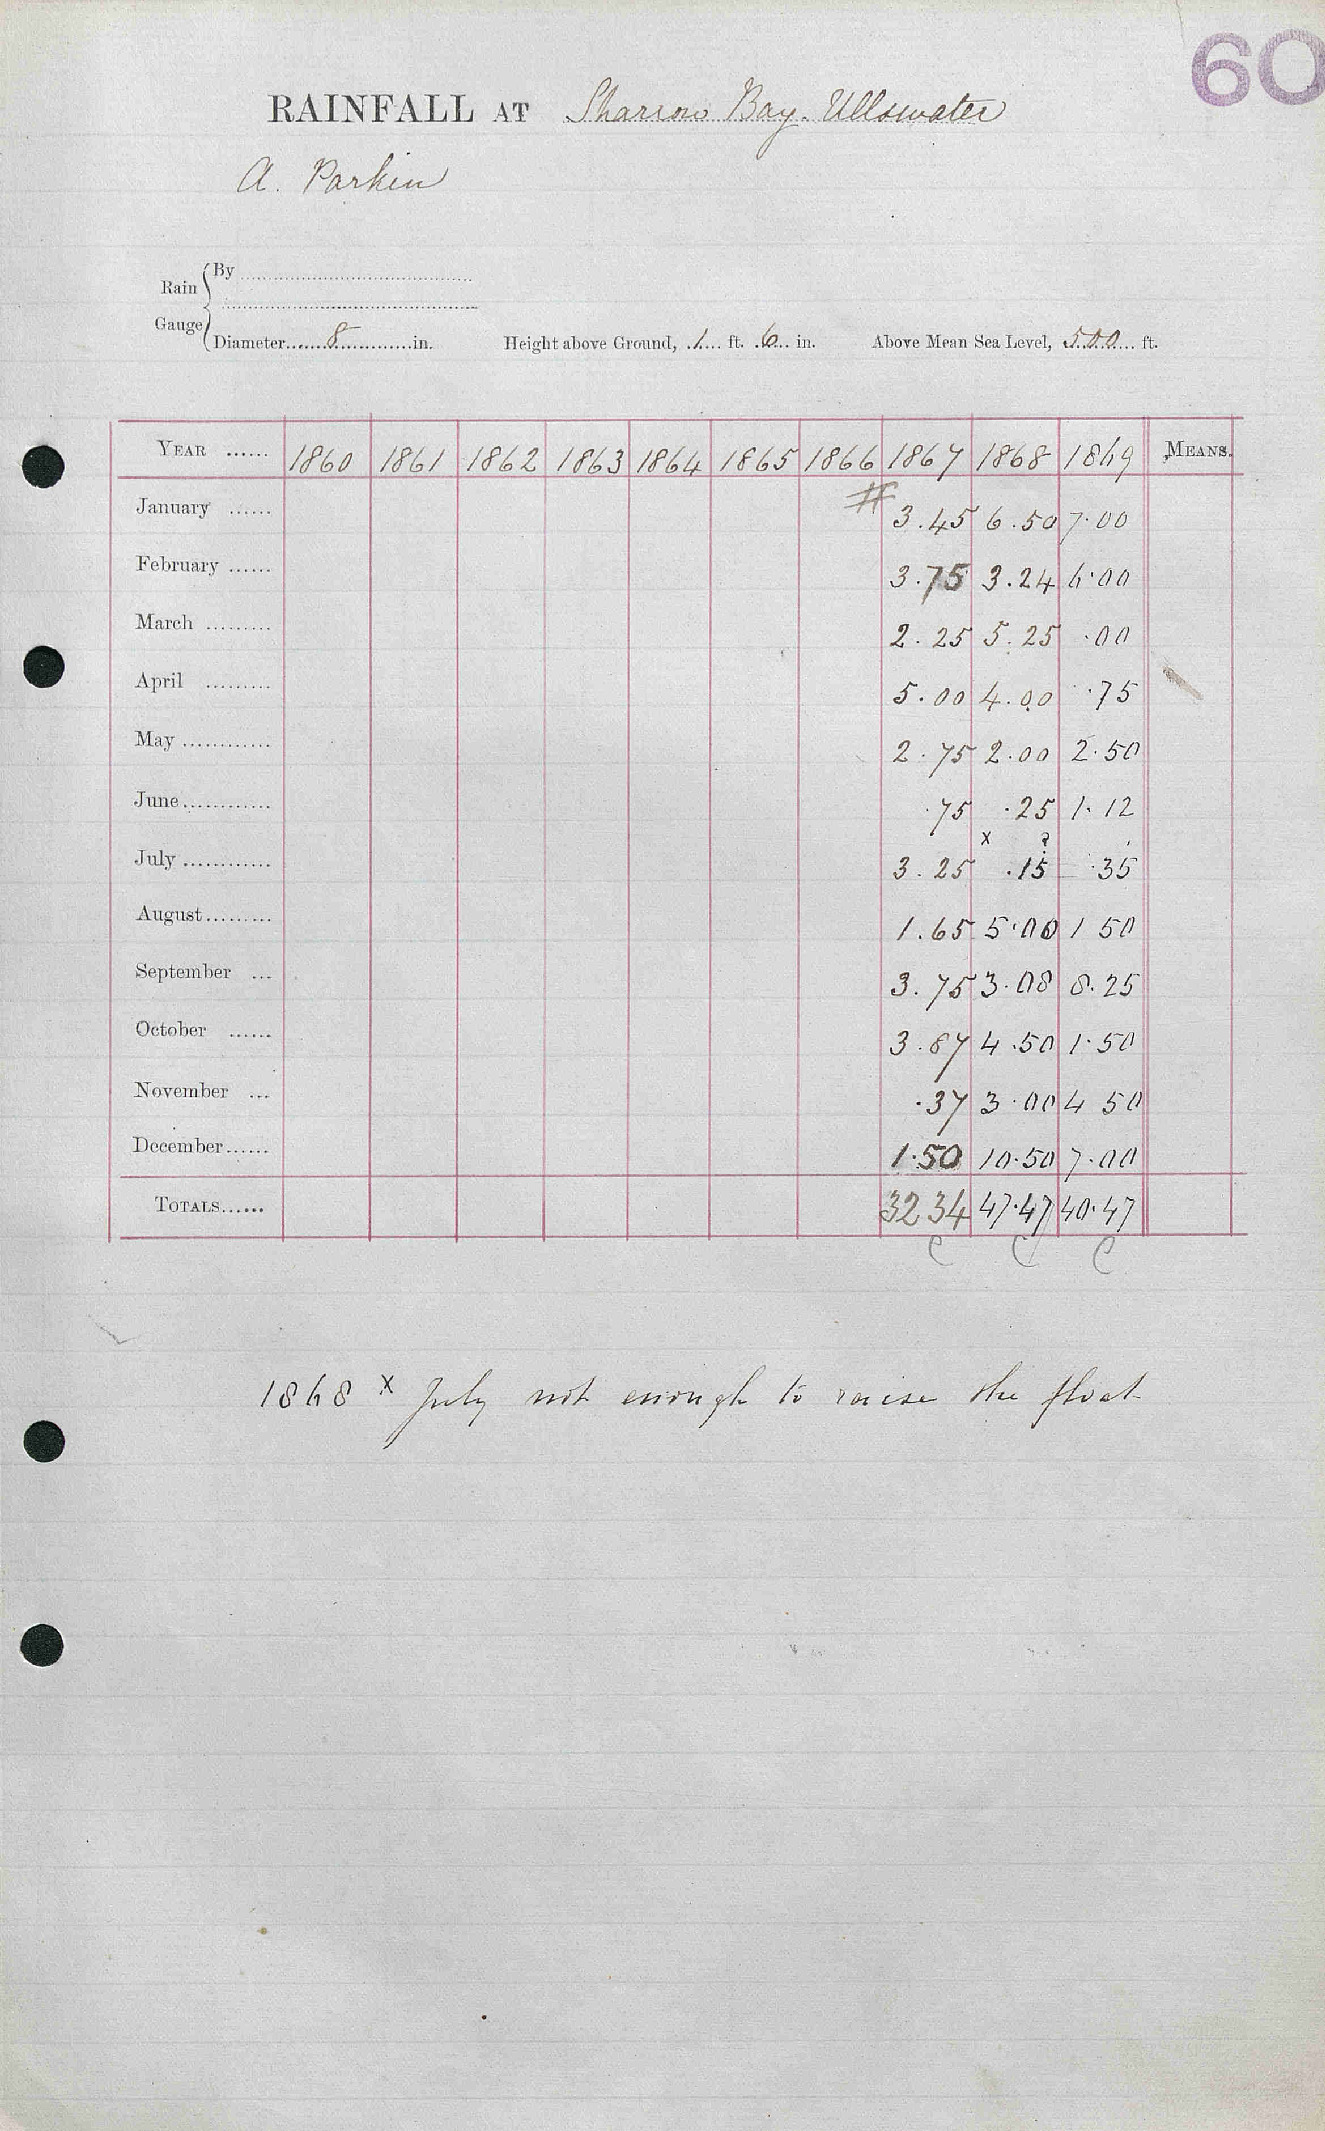 60
RAINFALL AT Sharrow Bay. Ullswater
A. Parkin
Rain Gauge
By
Diameter 8 in. Height above Ground, 1 ft. 6 in. Above Mean Sea Level, 500 ft.
YEAR 1860 1861 1862 1863 1864 1865 1866 1867 1868 1869 MEANS.
January # 3.45 6.50 7.00
February 3.75 3.24 6.00
March 2.25 5.25 .00
April 5.00 4.00 .75
May 2.75 2.00 2.50
June .75 .25 1.12
x ?
July 3.25 .15 .35
August 1.65 5.00 1 50
September 3.75 3.08 8.25
October 3.87 4.50 1.50
November .37 3.00 4 50
December 1.50 10.50 7.00
TOTALS 32 34 47.47 40.47
C C C
1868 x July not enough to raise the float